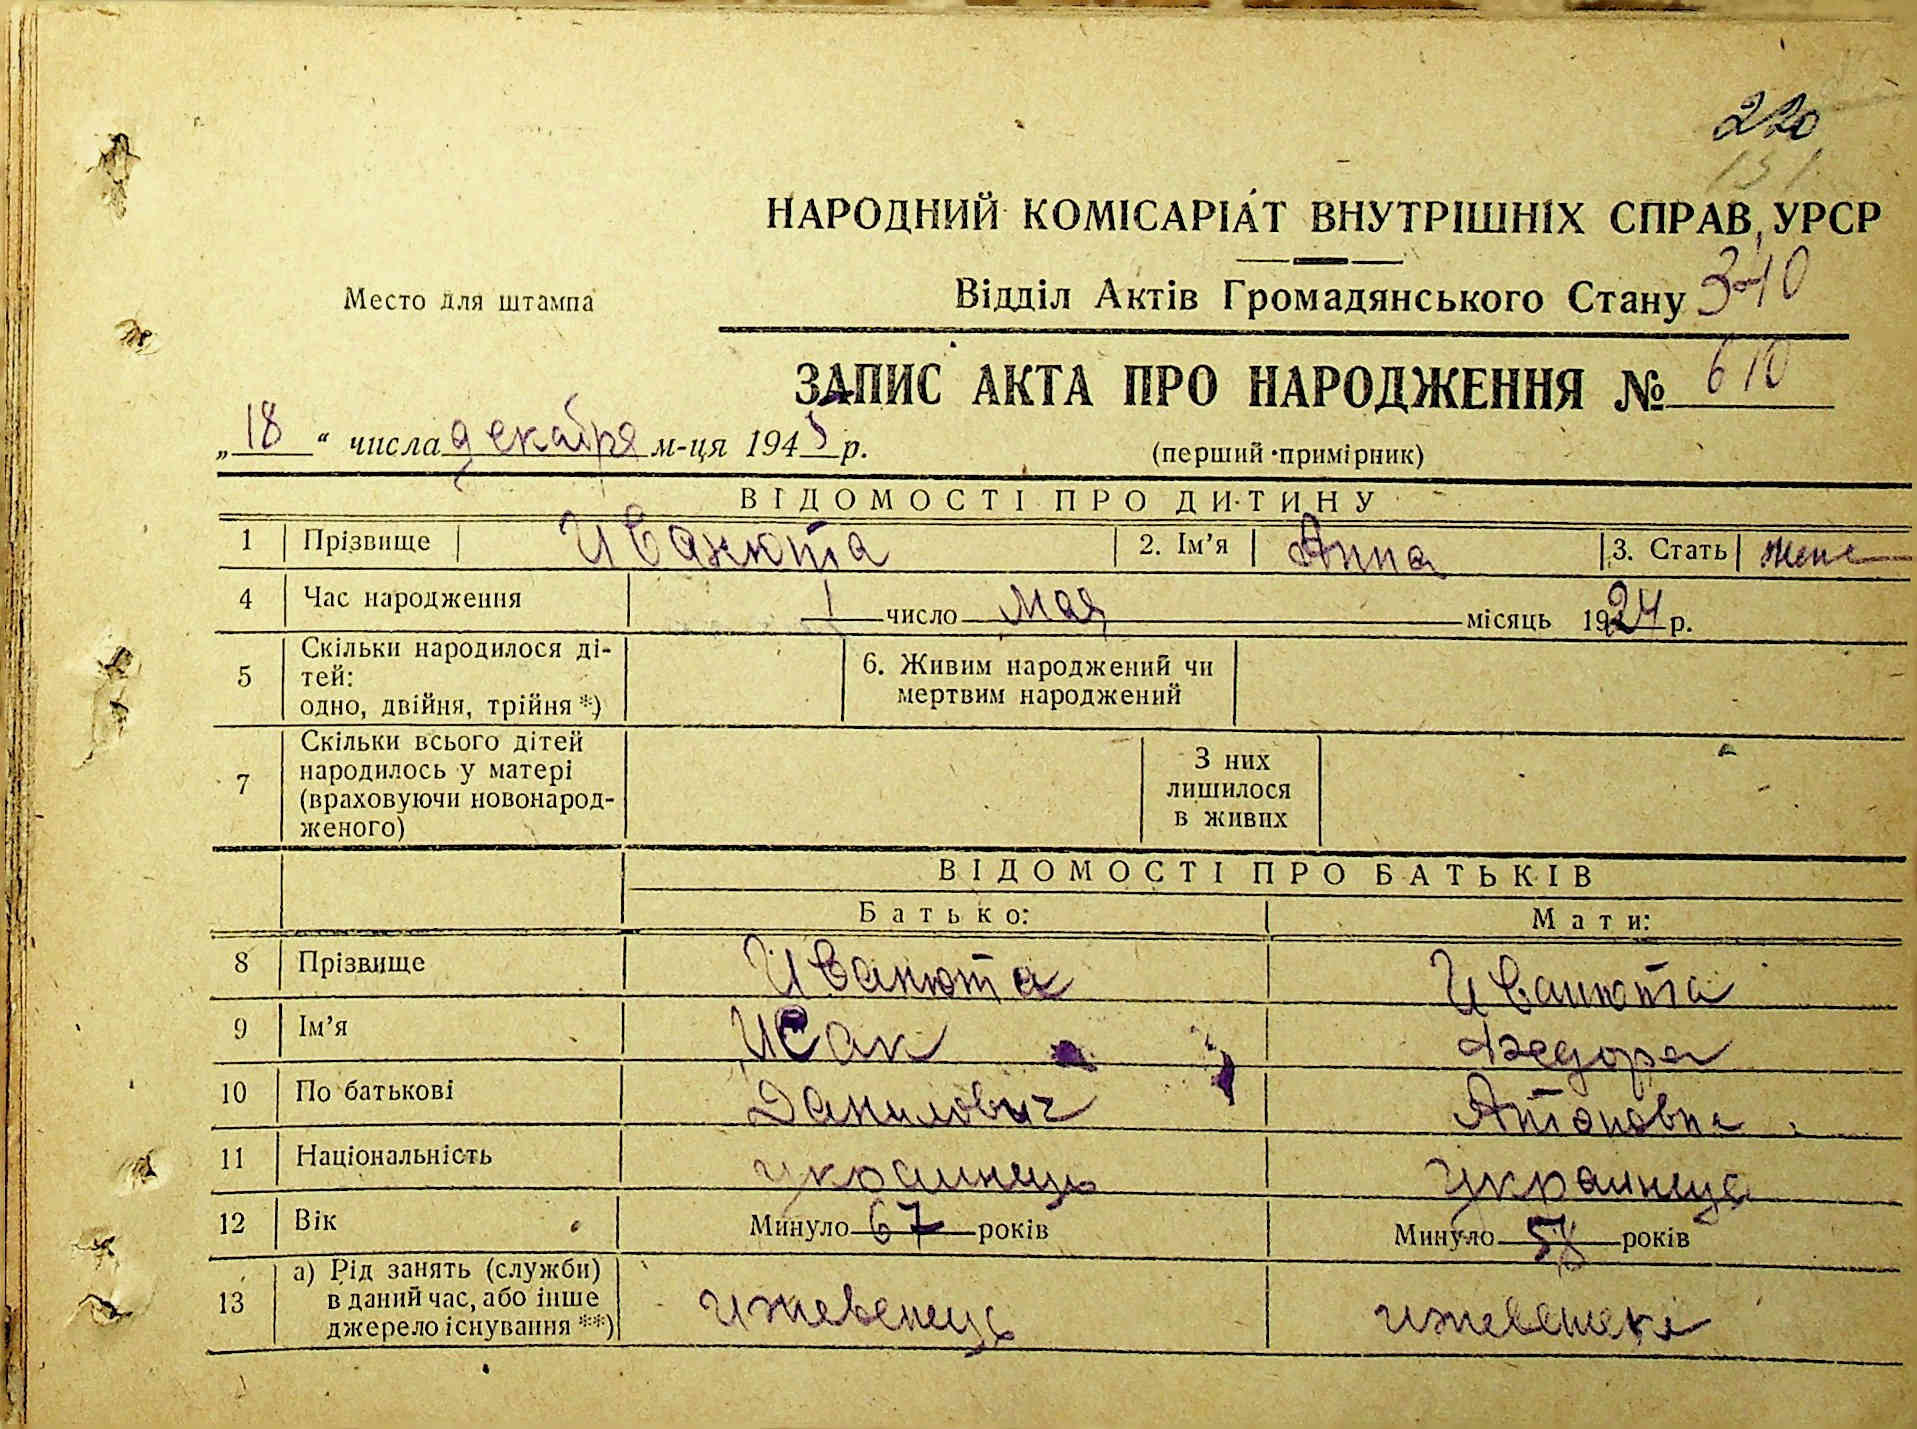 220
151
НАРОДНИЙ КОМІСАРІАТ ВНУТРІШНІХ СПРАВ УРСР
Место для штампа
Відділ Актів Громадянського Стану 340
ЗАПИС АКТА ПРО НАРОДЖЕННЯ № 610
„18“ числа декабря м-ця 1945 р.
(перший примірник)
ВІДОМОСТІ ПРО ДИТИНУ
1 Прізвище Иванюта 2. Ім’я Анна 3. Стать жен
4 Час народження 1 число мая місяць 1924 р.
5 Скільки народилося ді-
тей:
одно, двійня, трійня *)
6. Живим народжений чи
мертвим народжений
7 Скільки всього дітей
народилось у матері
(враховуючи новонарод-
женого)
З них
лишилося
в живих
ВІДОМОСТІ ПРО БАТЬКІВ
Батько: Мати:
8 Прізвище Иванюта Иванюта
9 Ім’я Исак Федора
10 По батькові Данилович Антоновна
11 Національність украинець украинець
12 Вік Минуло 67 років Минуло 58 років
13 а) Рід занять (служби)
в даний час, або інше
джерело існування **)
ижевенець ижевенека